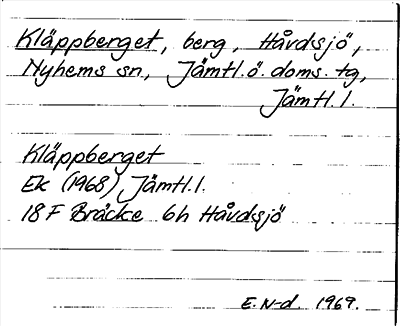 Kläppberget, berg, Håvdsjö,
Nyhems sn., Jämtl.ö. doms. tg,
Jämtl. l.
Kläppberget
Ek (1968) Jämtl. l.
18 F Bräcke 6h Håvdsjö
E. N-d. 1969.